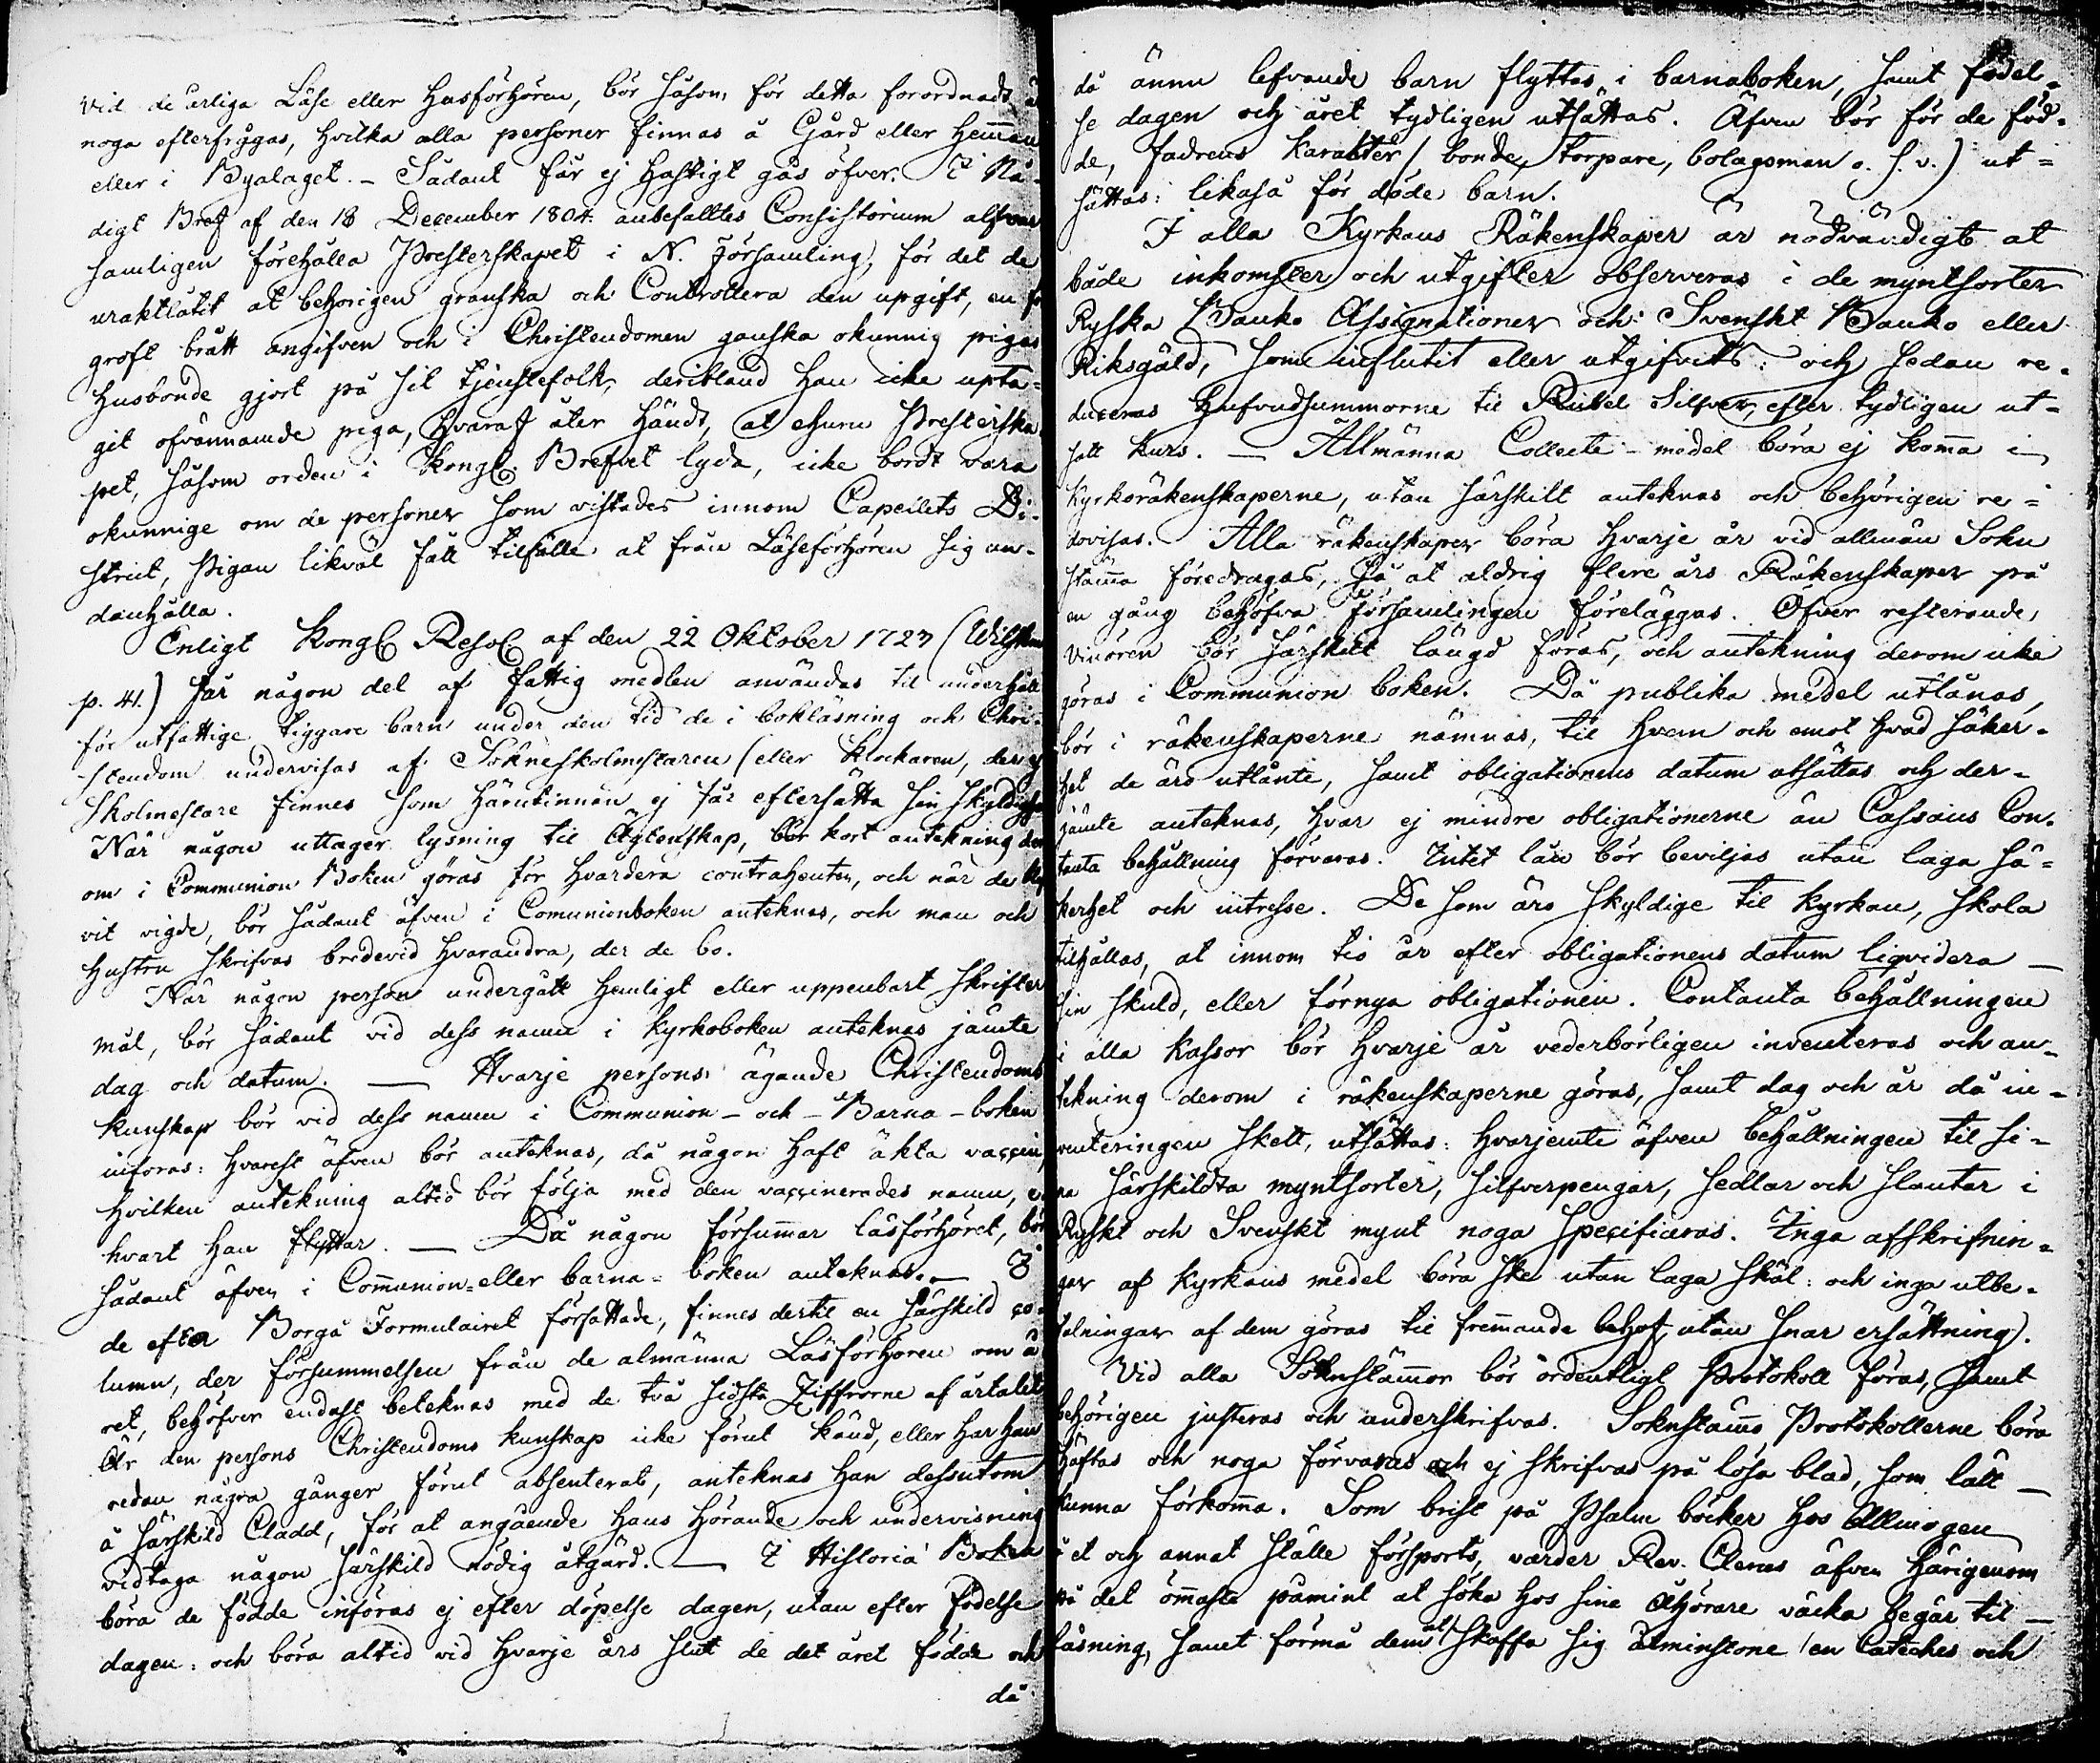 vid de årliga Läse eller Husförhören, bör såsom för detta förordnadt
noga efterfrågas, hvilka alla personer finnas å Gård eller Hem̄an
eller i Byalaget. – Sådant får ej hastigt gås öfver. I Nå-
digt Bref af den 18 December 1804. anbefalltes Consistorium alfvar
samligen förehålla Presterskapet i N. Församling, för det de
uraktlåtit at behörigen granska och Controllera den upgift, en
groft brått angifven och i Christendomen ganska okunnig pigas
Husbonde gjort på sit tjenstefolk, deribland han icke upta-
git ofvannämde piga, hvaraf åter händt, at ehuru Presterska
pet, såsom orden i Kongl. Brefvet lyda, icke bordt vara
okunnige om de personer som vistades innom Capellets Di-
strict, Pigan likväl fått tilfälle at från Läseförhören sig un-
danhålla.
Enligt Kongl Resol af den 22 Oktober 1723
p. 41.) får någon del af fattig medlen användas til underhåll
för utfattige tiggare barn under den tid de i bokläsning och Chri-
stendom undervisas af Sökneskolmestaren (eller Klockaren, der ej
Skolmestare finnes som härutinnan ej får eftersätta sin skyldighet
När någon uttager lysning til Ägtenskap, bör kort antekning der
om i Communion Boken göras för hvardera contrahenten, och när de blif
vit vigde, bör sådant äfven i Comunionboken anteknas, och man och
hustru skrifvas bredevid hvarandra, der de bo.
När någon person undergått hemligt eller uppenbart skrifter
mål, bör sådant vid dess namn i kyrkoboken anteknas jämte
dag och datum. — Hvarje persons ägande Christendoms
kunskap bör vid dess namn i Communion – och – Barna – boken
införas: hvarest äfven bör anteknas, då någon haft äkta vaccin,
hvilken antekning altid bör följa med den vaccinerades namn,
hvart han flyttar. — Då någon försum̄ar läsförhöret, bör
sådant äfven i Com̄union=eller barna=boken anteknas. — I
de efter Borgå Formulairet författade, finnes dertil en särskild co-
lumn, der försummelsen från de almänna Läsförhören om å
ret, behöfver endast beteknas med de två sidsta Ziffrorne af årtalet
Är den persons Christendoms kunskap icke förut känd, eller har han
redan några gånger förut absenterat, anteknas han dessutom
å särskild Cladd, för at angående hans hörande och undervisning
vidtaga någon särskild nödig åtgärd. — I Historia Boken
böra de födde införas ej efter döpelse dagen, utan efter födelse
dagen: och böra altid vid hvarje års slut de det året födde och
då
då ännu lefvande barn flyttas i barnaboken, samt födel-
se dagen och året tydligen utsättas. Äfven bör för de föd-
de, fadrens Karakter (bonde, torpare, bolagsman o. s. v.) ut=
sättas: likaså för döde barn.
I alla Kyrkans Räkenskaper är nödvändigt at
både inkomster och utgifter observeras i de myntsorter
Ryska Banko Assignationer och Svenskt Banko eller
Riksgäld, som influtit eller utgifvits: och sedan re-
duceras hufvudsummorne til Rubel Silfver, efter tydligen ut-
satt kurs. — Allmänna Collecte – medel böra ej kom̄a i
Kyrkoräkenskaperne, utan särskilt anteknas och behörigen re=
dovisas. Alla räkenskaper böra hvarje år vid allmän Sokn
stäm̄a föredragas, så at aldrig flere års Räkenskaper på
en gång behöfva församlingen föreläggas. Öfver resterande
Vinören bör särskilt längd föras, och antekning derom icke
göras i Communion boken. Då publika medel utlånas,
bör i räkenskaperne nämnas, til hvem och emot hvad säker-
het de äro utlånte, samt obligationens datum utsättas och der-
jämte anteknas, hvar ej mindre obligationerne än Cassans Con-
tanta behållning förvaras. Intet lån bör beviljas utan laga sä=
kerhet och intresse. De som äro skyldige til Kyrkan, skola
tilhållas, at innom tio år efter obligationens datum liqvidera —
sin skuld, eller förnya obligationen. Contanta behållningen
i alla Kassor bör hvarje år vederbörligen inventeras och an-
tekning derom i räkenskaperne göras, samt dag och år då in-
venteringen skett, utsättas: hvarjemte äfven behållningen til si-
na särskildta myntsorter, silfverpengar, sedlar och slantar i
Ryskt och Svenskt mynt noga specificeras. Inga afskrifnin-
gar af Kyrkans medel böra ske utan laga skäl: och inga utbe-
talningar af dem göras til frem̄ande behof, utan snar ersättning).
Vid alla Soknstäm̄or bör ordentligt Protokoll föras, samt
behörigen justeras och underskrifvas. Soknstäm̄o Protokollerne böra
häftas och noga förvaras och ej skrifvas på lösa blad, som lätt —
kunna förkom̄a. Som brist på Psalm böcker hos Allmogen
i et och annat ställe försports, varder Rev. Clerus äfven härigenom
på det öm̄aste påmint at söka hos sine Åhörare väcka begär til —
läsning, samt förmå dem at skaffa sig åtminstone en Cateches och